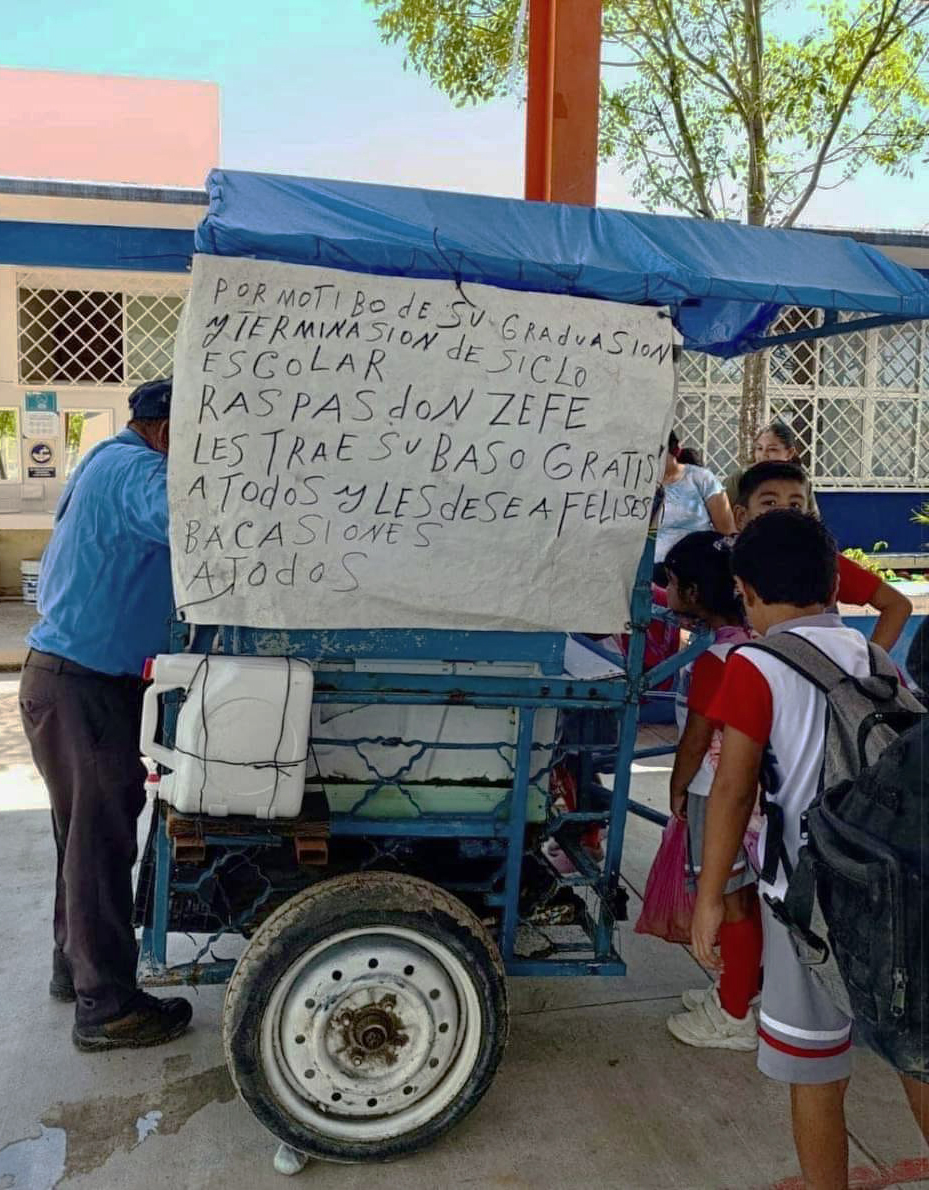 POR MOTIBO de SU GRADUASION
Y TERMINASION de SICLO
ESCOLAR
RASPAS dON ZEFE
LES TRAE SU BASO GRATIS
A TOdOS Y LES dESEA FELISES
BACASIONES
A TOdOS